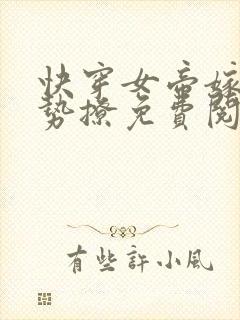 快穿女帝嫁
势撩免費閱
有些許小風